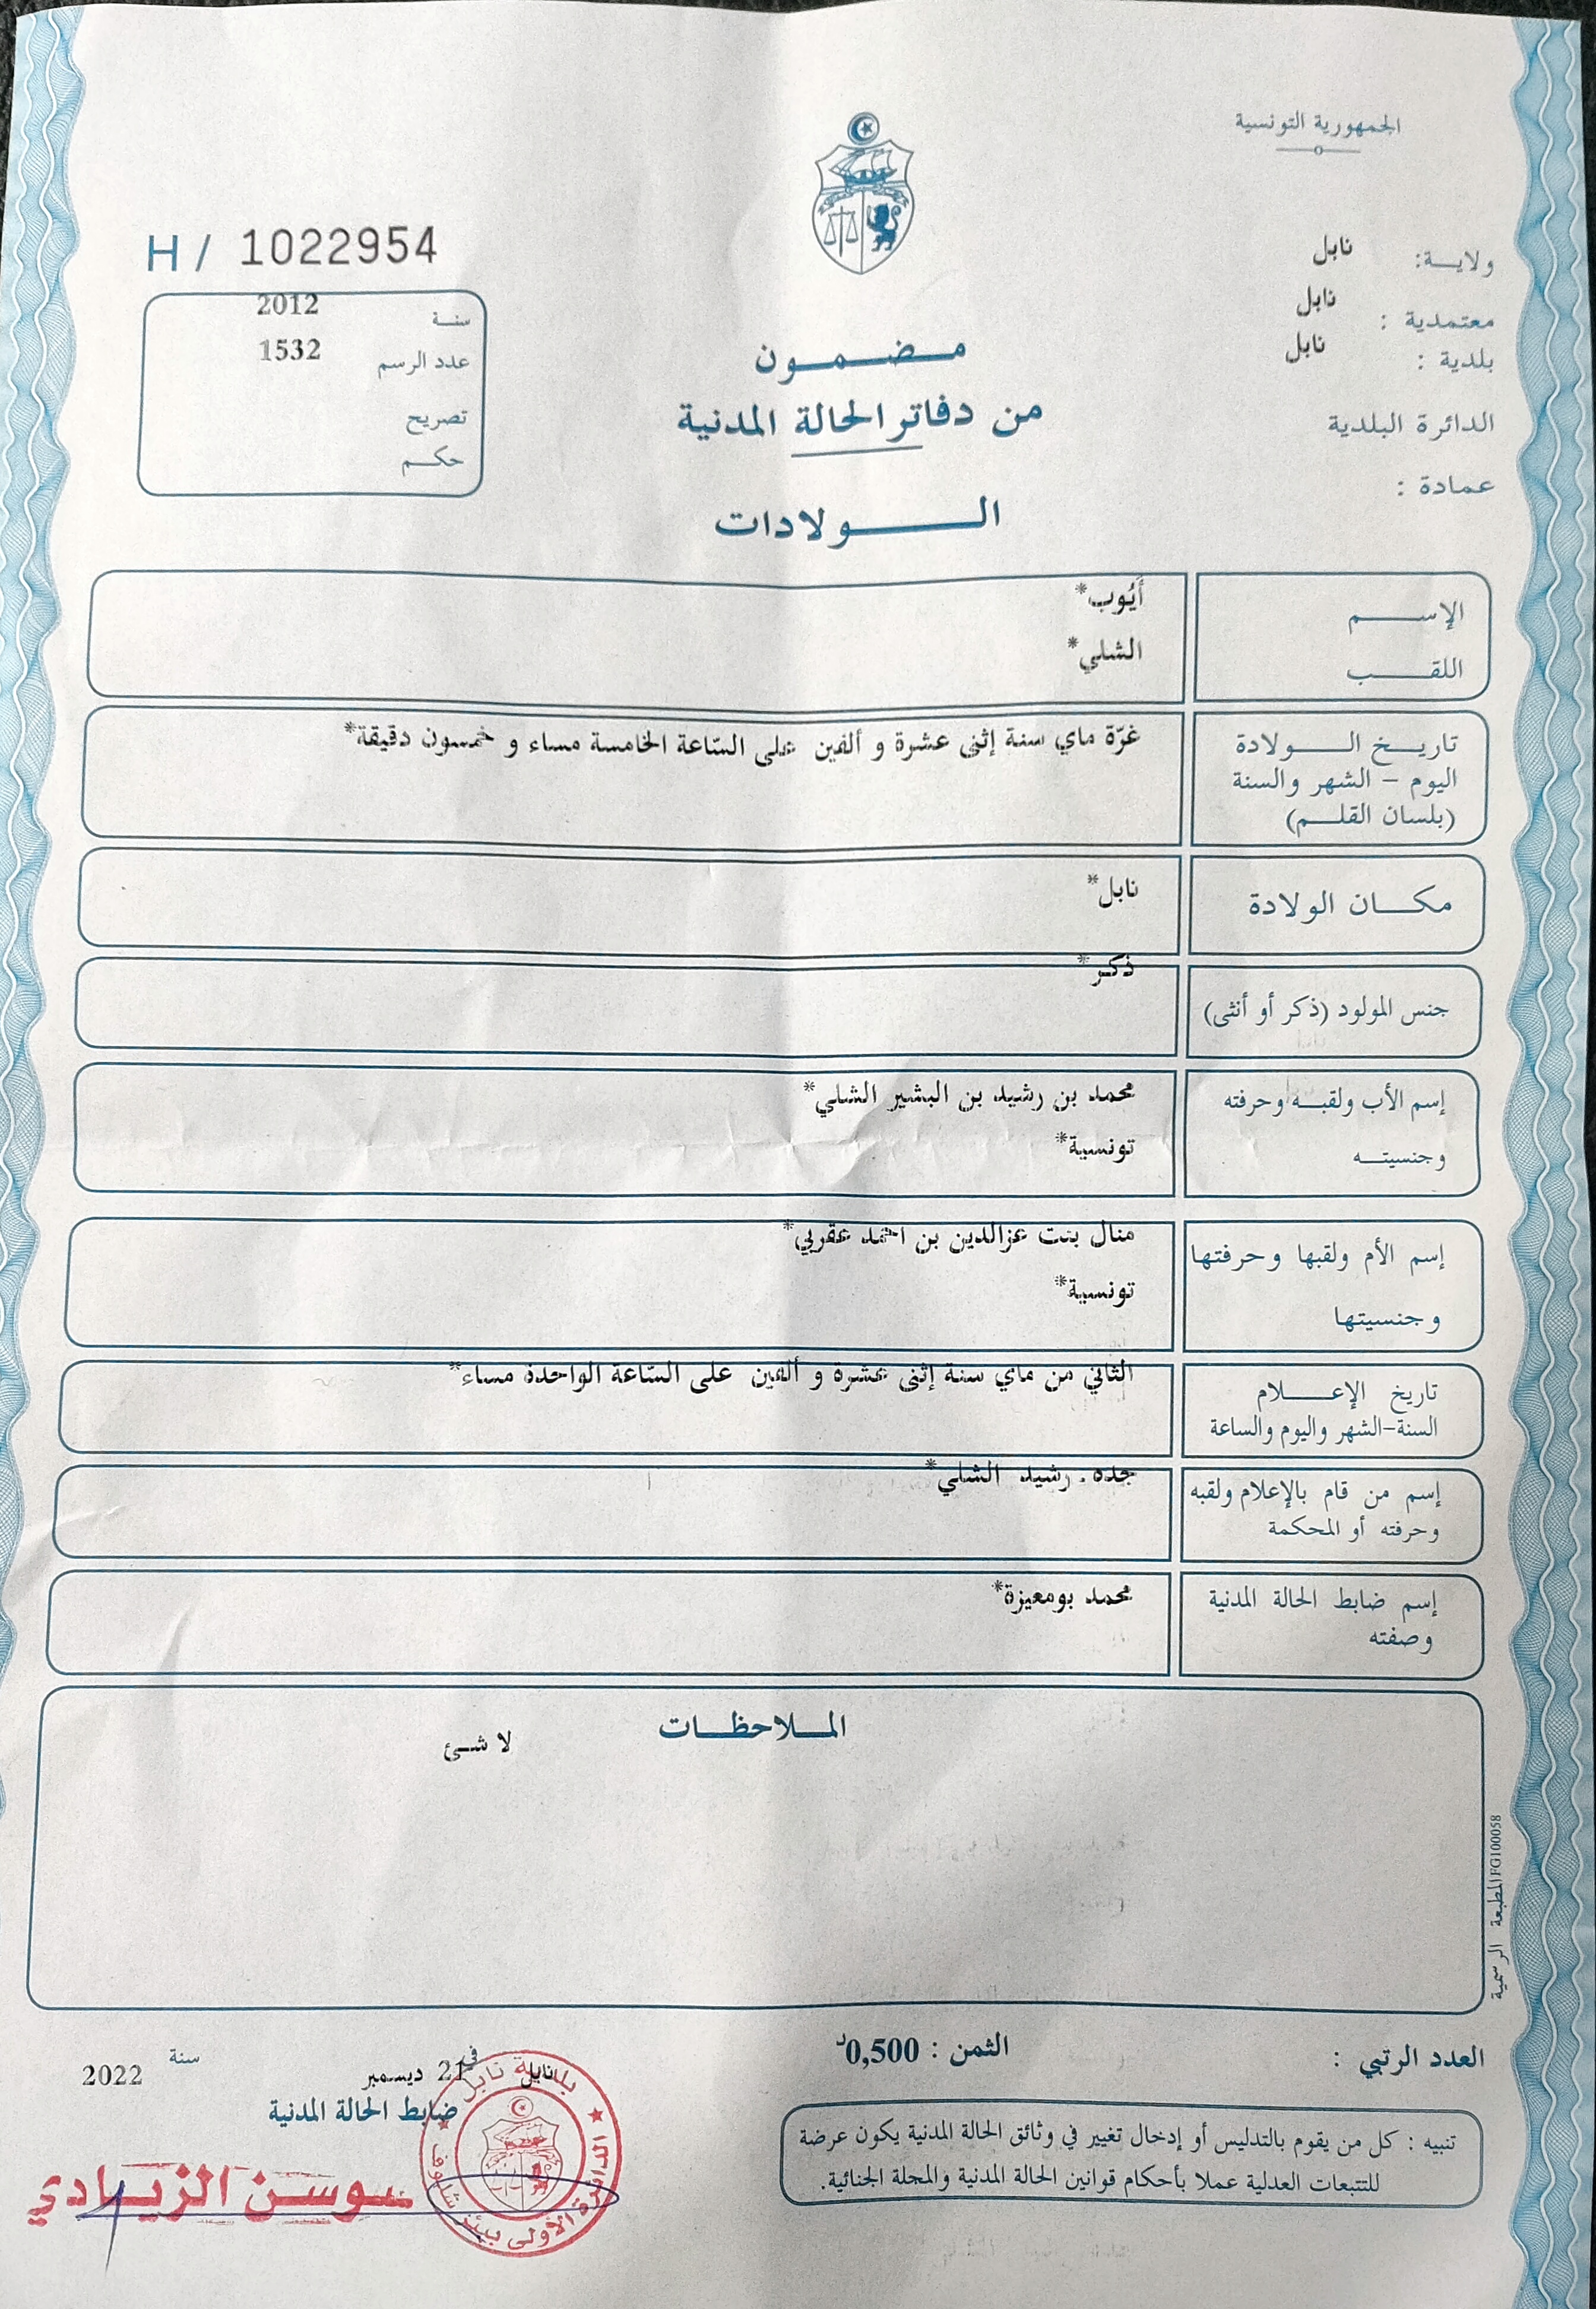 الجمهورية التونسية
ولاية: نابل
معتمدية : نابل
بلدية : نابل
الدائرة البلدية
عمادة :
H / 1022954
سنة 2012
عدد الرسم 1532
تصريح
حكم
مضمون
من دفاتر الحالة المدنية
الولادات
الإسم أيّوب*
اللقب الشلي*
تاريخ الولادة غرّة ماي سنة إثنى عشرة و ألفين على السّاعة الخامسة مساء و خمسون دقيقة*
اليوم - الشهر والسنة
(بلسان القلم)
مكان الولادة نابل*
جنس المولود (ذكر أو أنثى) ذكر*
إسم الأب ولقبه وحرفته محمد بن رشيد بن البشير الشلي*
وجنسيته تونسية*
إسم الأم ولقبها وحرفتها منال بنت عزالدين بن احمد عقربي*
وجنسيتها تونسية*
تاريخ الإعلام الثاني من ماي سنة إثنى عشرة و ألفين على السّاعة الواحدة مساء*
السنة-الشهر واليوم والساعة
إسم من قام بالإعلام ولقبه جده . رشيد الشلي*
وحرفته أو المحكمة
إسم ضابط الحالة المدنية محمد بومعيزة*
وصفته
الملاحظات
لا شئ
المطبعة الرسمية FG100058
العدد الرتبي :
الثمن : 0,500د
نابل في 21 ديسمبر سنة 2022
ضابط الحالة المدنية
سوسن الزيادي
بلدية نابل
الدائرة الأولى
تنبيه : كل من يقوم بالتدليس أو إدخال تغيير في وثائق الحالة المدنية يكون عرضة
للتتبعات العدلية عملا بأحكام قوانين الحالة المدنية والمجلة الجنائية.